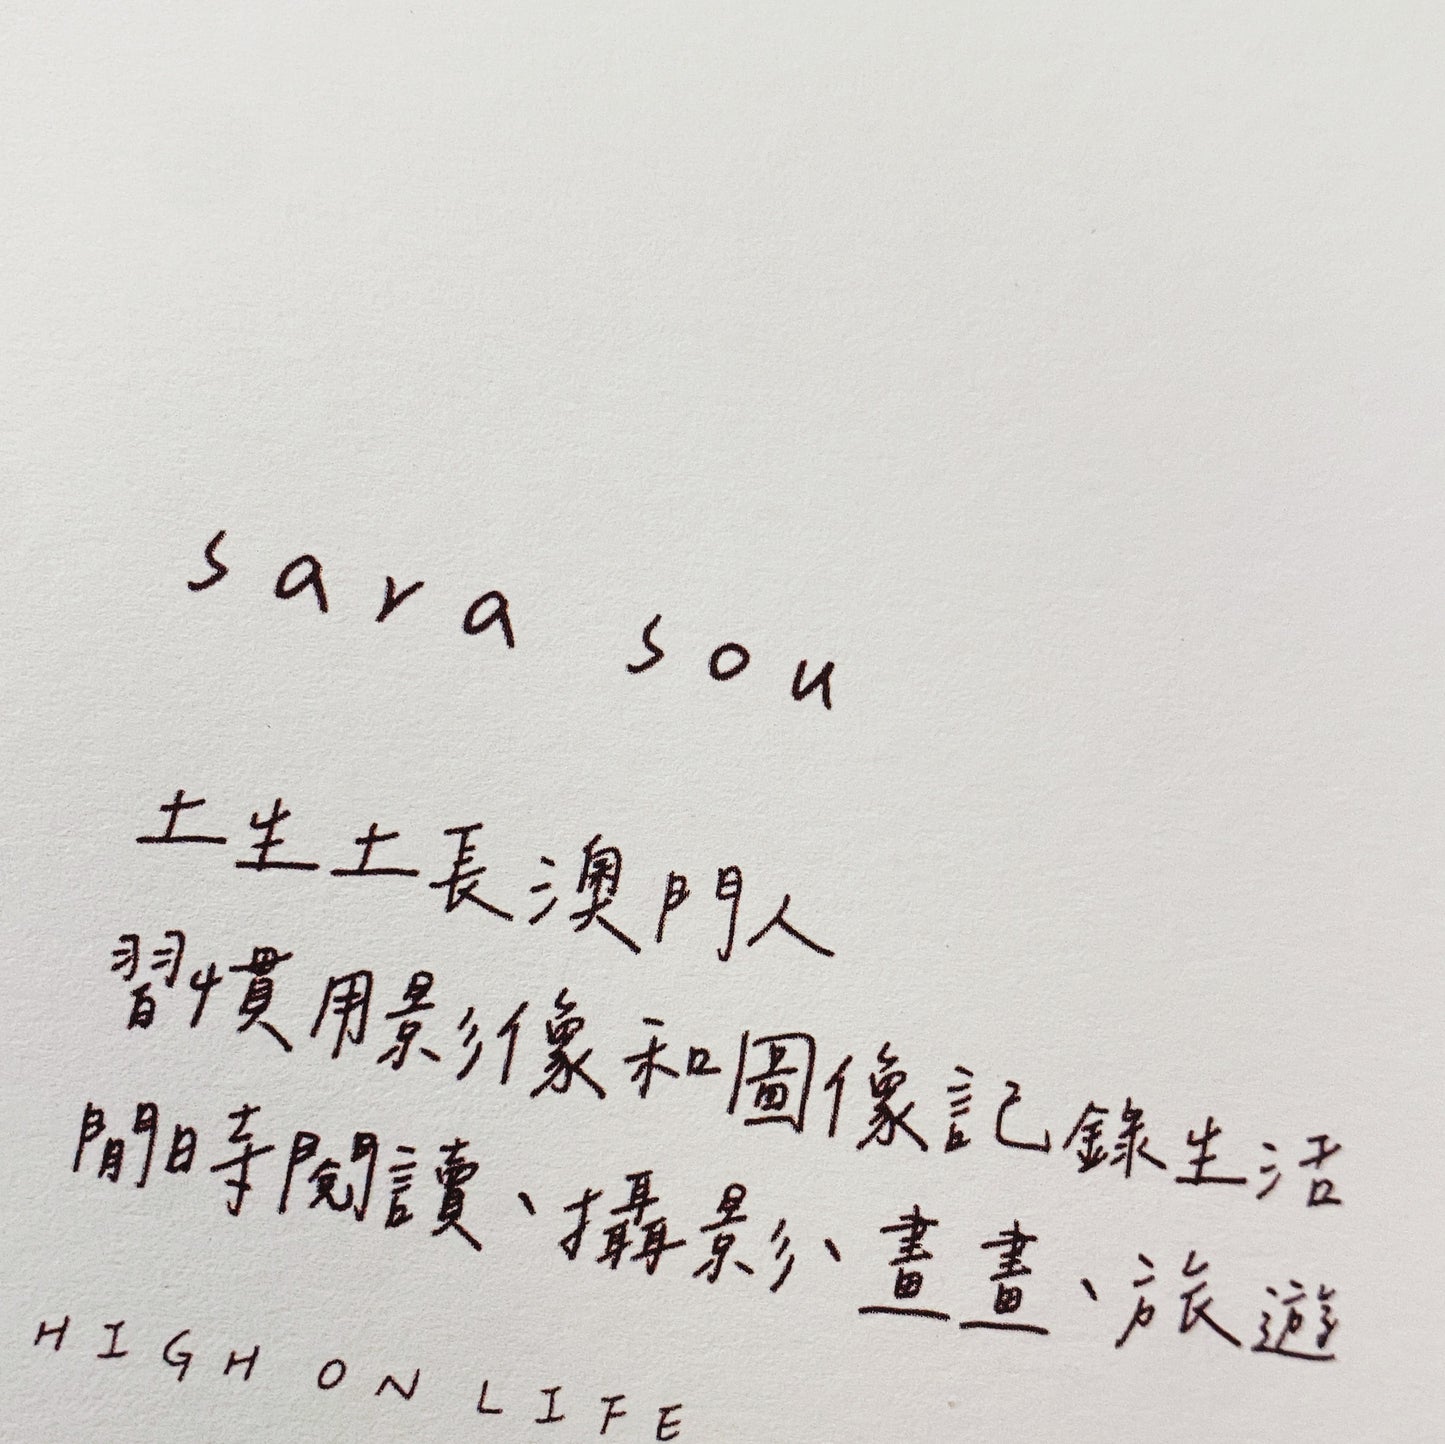 sara sou
土生土長澳門人
習慣用影像和圖像記錄生活
閒時閱讀、攝影、畫畫、旅遊
HIGH ON LIFE